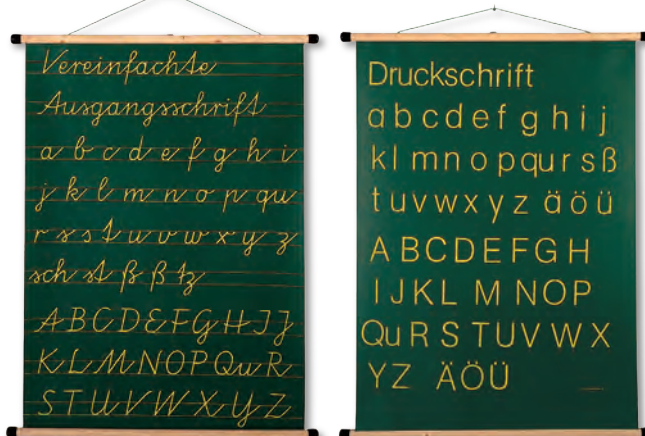 Vereinfachte
Ausgangsschrift
a b c d e f g h i
j k l m n o p qu
r s s t u v w x y z
sch st ß ß tz
A B C D E F G H I J
K L M N O P Qu R
S T U V W X Y Z
Druckschrift
a b c d e f g h i j
k l m n o p qu r s ß
t u v w x y z ä ö ü
A B C D E F G H
I J K L M N O P
Qu R S T U V W X
Y Z Ä Ö Ü